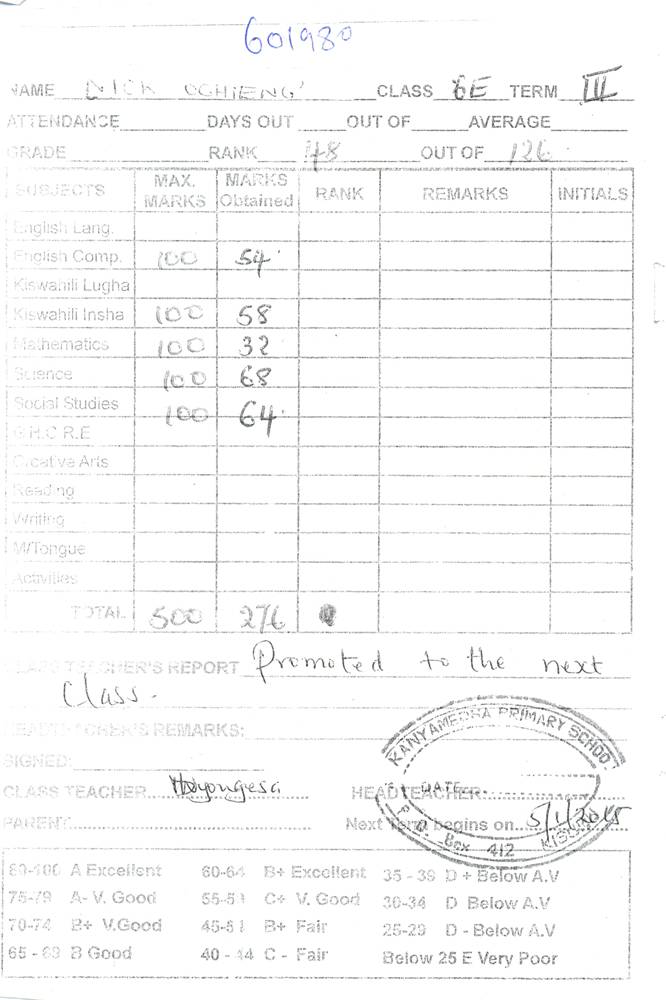 601980
NAME NICK OCHIENG' CLASS 6E TERM III
ATTENDANCE DAYS OUT OUT OF AVERAGE
GRADE RANK 48 OUT OF 126
SUBJECTS MAX. MARKS MARKS Obtained RANK REMARKS INITIALS
English Lang.
English Comp. 100 54
Kiswahili Lugha
Kiswahili Insha 100 58
Mathematics 100 32
Science 100 68
Social Studies 100 64
G.H.C R.E
Creative Arts
Reading
Writing
M/Tongue
Activities
TOTAL 500 276
CLASS TEACHER'S REPORT Promoted to the next
Class.
HEADTEACHER'S REMARKS:
SIGNED:
CLASS TEACHER HEADTEACHER
PARENT Next Term begins on 5/1/2015
KANYAMEDHA PRIMARY SCHOOL
DATE
P. O. Box 412 KISUMU
80-100 A Excellent 60-64 B+ Excellent 35 - 39 D + Below A.V
75-79 A- V. Good 55-59 C+ V. Good 30-34 D Below A.V
70-74 B+ V.Good 45-51 B+ Fair 25-29 D - Below A.V
65 - 69 B Good 40 - 44 C - Fair Below 25 E Very Poor